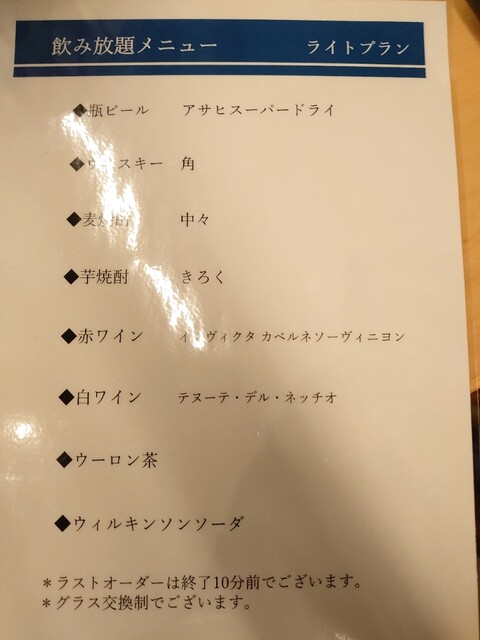 飲み放題メニュー ライトプラン
◆瓶ビール アサヒスーパードライ
スキー 角
◆麦 中々
◆芋焼酎 きろく
◆赤ワイン ヴィクタ カベルネソーヴィニヨン
◆白ワイン テヌーテ・デル・ネッチオ
◆ウーロン茶
◆ウィルキンソンソーダ
＊ラストオーダーは終了10分前でございます。
＊グラス交換制でございます。